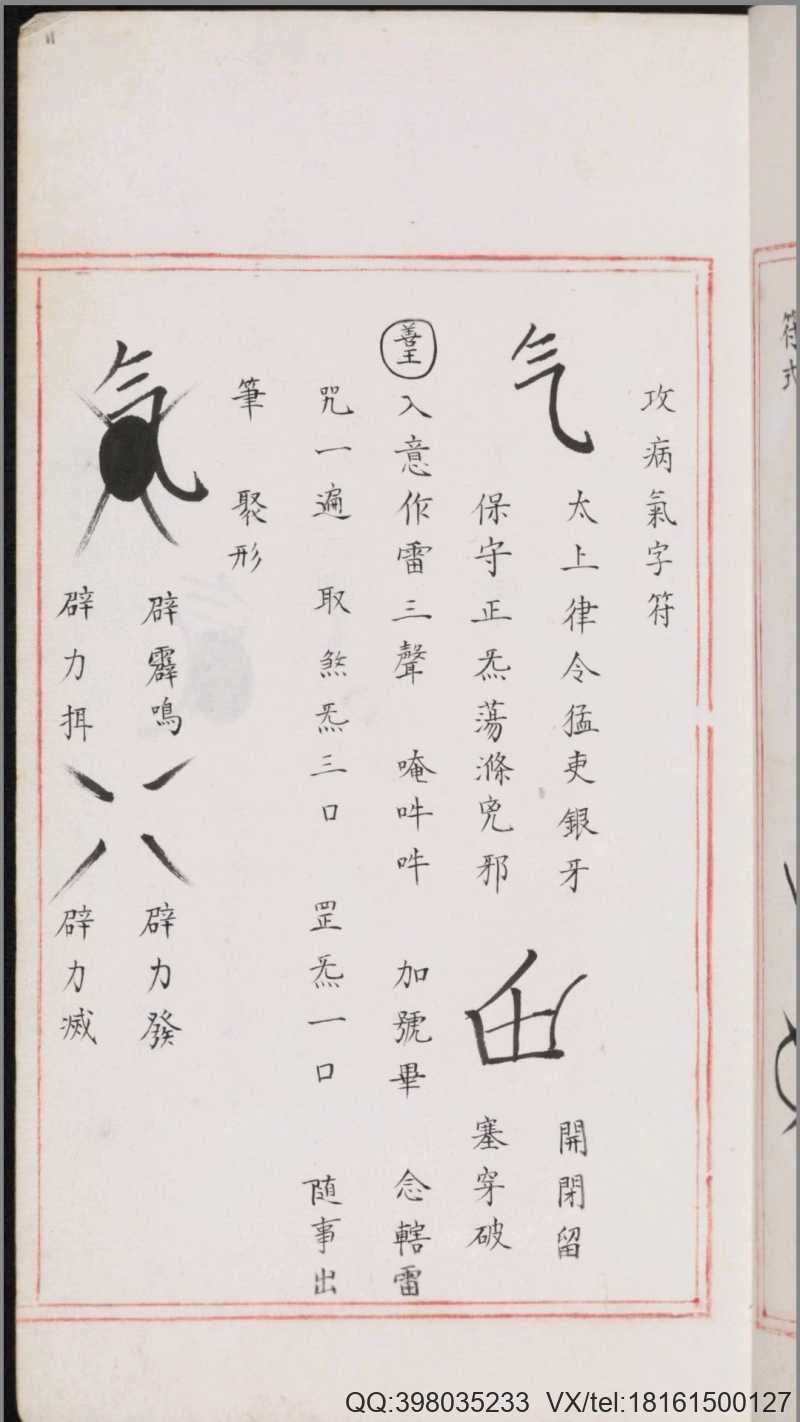 攻病氣字符
气
太上律令猛吏銀牙
保守正炁蕩滌兇邪
開閉留
塞穿破
善王
入意作雷三聲 唵吽吽 加號畢 念轄雷
咒一遍 取煞炁三口 罡炁一口 随事出
筆 聚形
辟霹鳴 辟力發
辟力揖 辟力滅
符式
QQ:398035233 VX/tel:18161500127